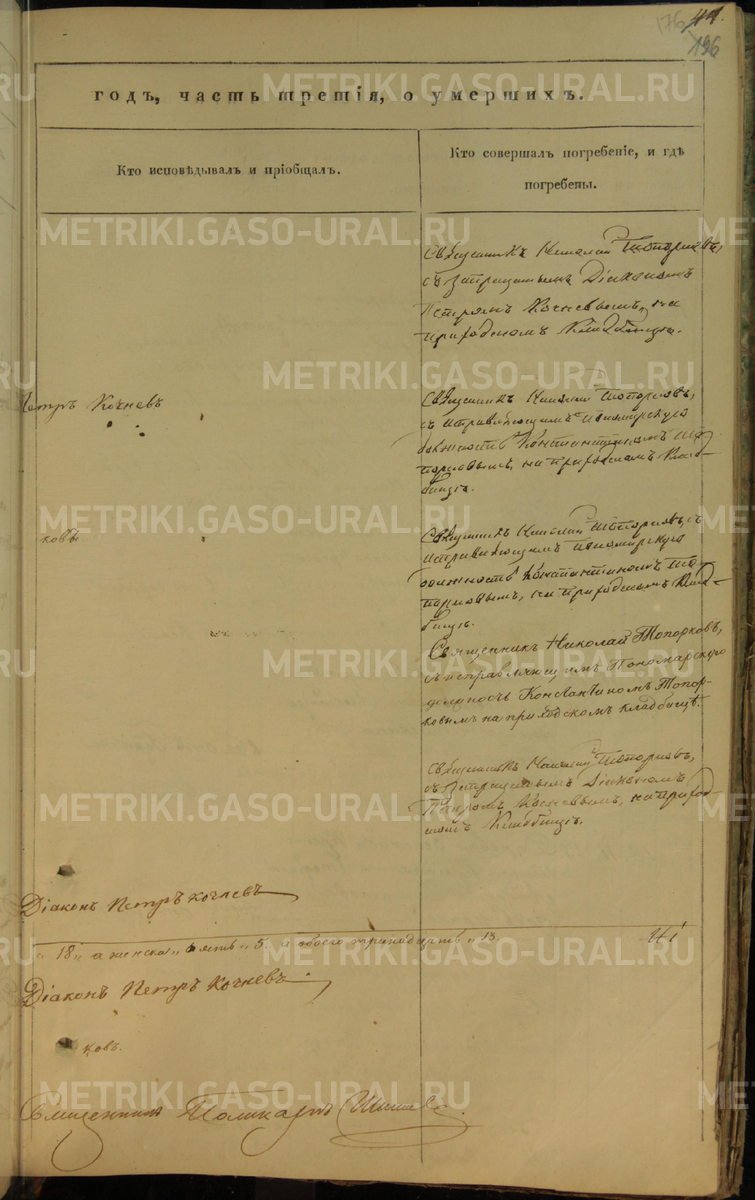 176 44.
196
годъ, часть третія, о умершихъ.
Кто исповѣдывалъ и пріобщалъ.
Кто совершалъ погребеніе, и гдѣ
погребены.
Священникъ Николай Топорковъ,
съ запрещеннымъ Діакономъ
Петромъ Кочневымъ, на
приходскомъ Кладбищѣ.
Петръ Кочневъ
Священникъ Николай Топорковъ,
съ исправляющимъ Пономарскую
должность Константиномъ То-
порковымъ, на приходскомъ Клад-
бищѣ.
ковъ
Священникъ Николай Топорковъ, съ
исправляющимъ Пономарскую
должность Константиномъ То-
порковымъ, на приходскомъ Клад-
бищѣ.
Священникъ Николай Топорковъ,
съ исправляющимъ Пономарскую
должность Константиномъ Топор-
ковымъ на приходскомъ кладбищѣ.
Священникъ Николай Топорковъ,
съ запрещеннымъ Діакономъ
Петромъ Кочневымъ, на приход-
скомъ Кладбищѣ.
Діаконъ Петръ Кочневъ
18 а женска 5. и обоего тринадцать 13.
Діаконъ Петръ Кочневъ
ковъ.
Священникъ Поликарпъ
METRIKI.GASO-URAL.RU